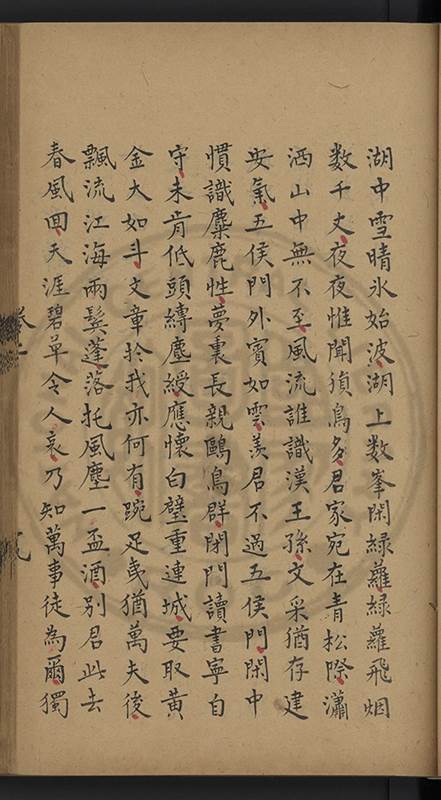 湖中雪晴氷始波湖上数峯閑緑蘿緑蘿飛烟
数千丈夜夜惟聞猿鳥多君家宛在青松際瀟
洒山中無不至風流誰識漢王孫文采猶存建
安氣五侯門外賓如雲羡君不過五侯門閑中
慣識麋鹿性夢裏長親鷗鳥群閉門讀書寧自
守未肯低頭縳塵綬應懷白璧重連城要取黃
金大如斗文章於我亦何有踠足或猶萬夫後
飄流江海兩鬓蓬落托風塵一盃酒別君此去
春風回天涯碧草令人哀乃知萬事徒為爾獨